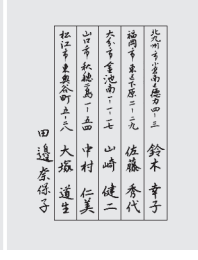 北九州市小倉南区徳力四-三 鈴木 幸子
福岡市東区下原二-二九 佐藤 秀代
大分市金池南一-一-七 山崎 健二
山口市秋穂二島一-五四 中村 仁美
松江市東奥谷町五-二八 大塚 道生
田邊奈保子